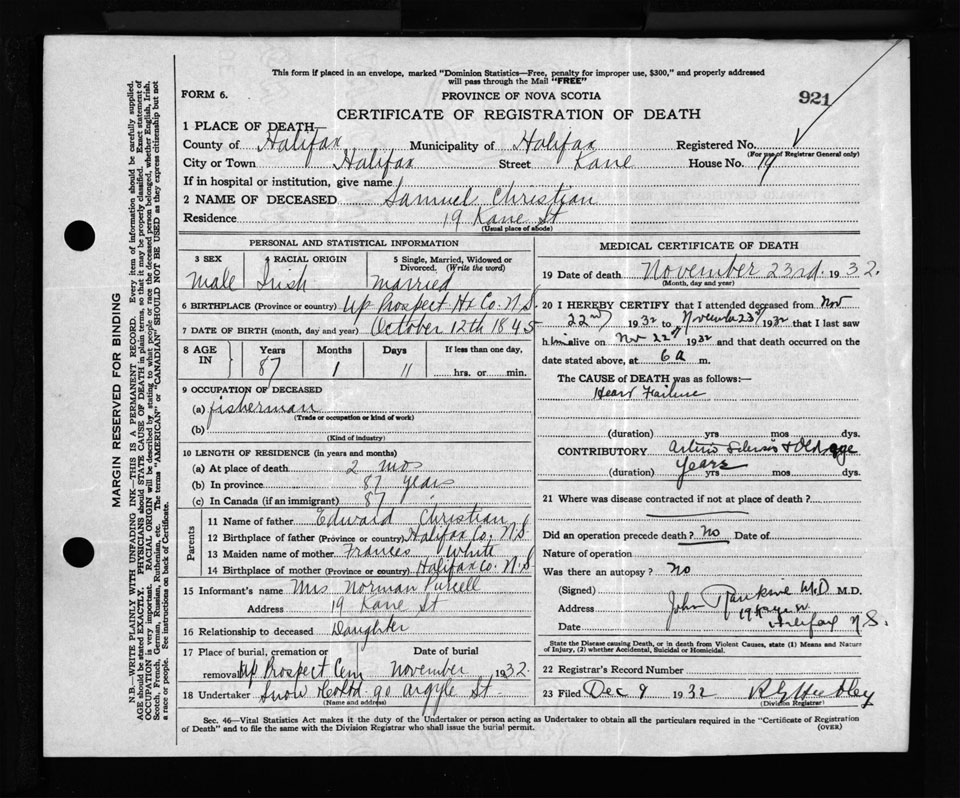 This form if placed in an envelope, marked "Dominion Statistics—Free, penalty for improper use, $300," and properly addressed
will pass through the Mail "FREE"
FORM 6.
PROVINCE OF NOVA SCOTIA
921
CERTIFICATE OF REGISTRATION OF DEATH
1 PLACE OF DEATH—
County of Halifax Municipality of Halifax Registered No.
(For use of Registrar General only)
City or Town Halifax Street Kane House No. 19
If in hospital or institution, give name
2 NAME OF DECEASED Samuel Christian
Residence 19 Kane St
(Usual place of abode)
PERSONAL AND STATISTICAL INFORMATION
3 SEX 4 RACIAL ORIGIN 5 Single, Married, Widowed or
Divorced. (Write the word)
Male Irish Married
6 BIRTHPLACE (Province or country) Up Prospect Hx Co. N.S.
7 DATE OF BIRTH (month, day and year) October 12th 1845
8 AGE IN Years Months Days If less than one day,
87 1 11 hrs. or min.
9 OCCUPATION OF DECEASED
(a) fisherman
(Trade or occupation or kind of work)
(b)
(Kind of industry)
10 LENGTH OF RESIDENCE (in years and months)
(a) At place of death 2 mos
(b) In province 87 years
(c) In Canada (if an immigrant) 87 "
Parents
11 Name of father Edward Christian
12 Birthplace of father (Province or country) Halifax Co, N.S
13 Maiden name of mother Frances White
14 Birthplace of mother (Province or country) Halifax Co. N.S
15 Informant's name Mrs Norman Purcell
Address 19 Kane St
16 Relationship to deceased Daughter
17 Place of burial, cremation or removal Date of burial
Up Prospect Cem November 1932
18 Undertaker Snow & Co Ltd 90 Argyle St
(Name and address)
MEDICAL CERTIFICATE OF DEATH
19 Date of death November 23rd. 1932.
(Month, day and year)
20 I HEREBY CERTIFY that I attended deceased from Nov
22nd 1932 to November 23rd 1932 that I last saw
him alive on Nov 22nd 1932 and that death occurred on the
date stated above, at 6 a m.
The CAUSE OF DEATH was as follows:—
Heart Failure
(duration) yrs mos dys.
CONTRIBUTORY Arterio Sclerosis & Old age
(duration) Years yrs mos dys.
21 Where was disease contracted if not at place of death?
Did an operation precede death? No Date of
Nature of operation
Was there an autopsy? No
(Signed) John Rankine M.D. M.D.
Address
Date Halifax N.S.
State the Disease causing Death, or in death from Violent Causes, state (1) Means and Nature
of Injury, (2) whether Accidental, Suicidal or Homicidal.
22 Registrar's Record Number
23 Filed Dec 9 1932
(Division Registrar)
Sec. 46—Vital Statistics Act makes it the duty of the Undertaker or person acting as Undertaker to obtain all the particulars required in the "Certificate of Registration
of Death" and to file the same with the Division Registrar who shall issue the burial permit. (OVER)
MARGIN RESERVED FOR BINDING
N.B.—WRITE PLAINLY WITH UNFADING INK—THIS IS A PERMANENT RECORD. Every item of information should be carefully supplied.
AGE should be stated EXACTLY. PHYSICIANS should STATE CAUSE OF DEATH in plain terms, so that it may be properly classified. Exact statement of
OCCUPATION is very important. RACIAL ORIGIN will be described by stating to what people or race the deceased person belonged, whether English, Irish,
Scotch, French, German, Russian, Ruthenian, etc. The terms "AMERICAN" or "CANADIAN" SHOULD NOT BE USED as they express citizenship but not
a race or people. See instructions on back of Certificate.